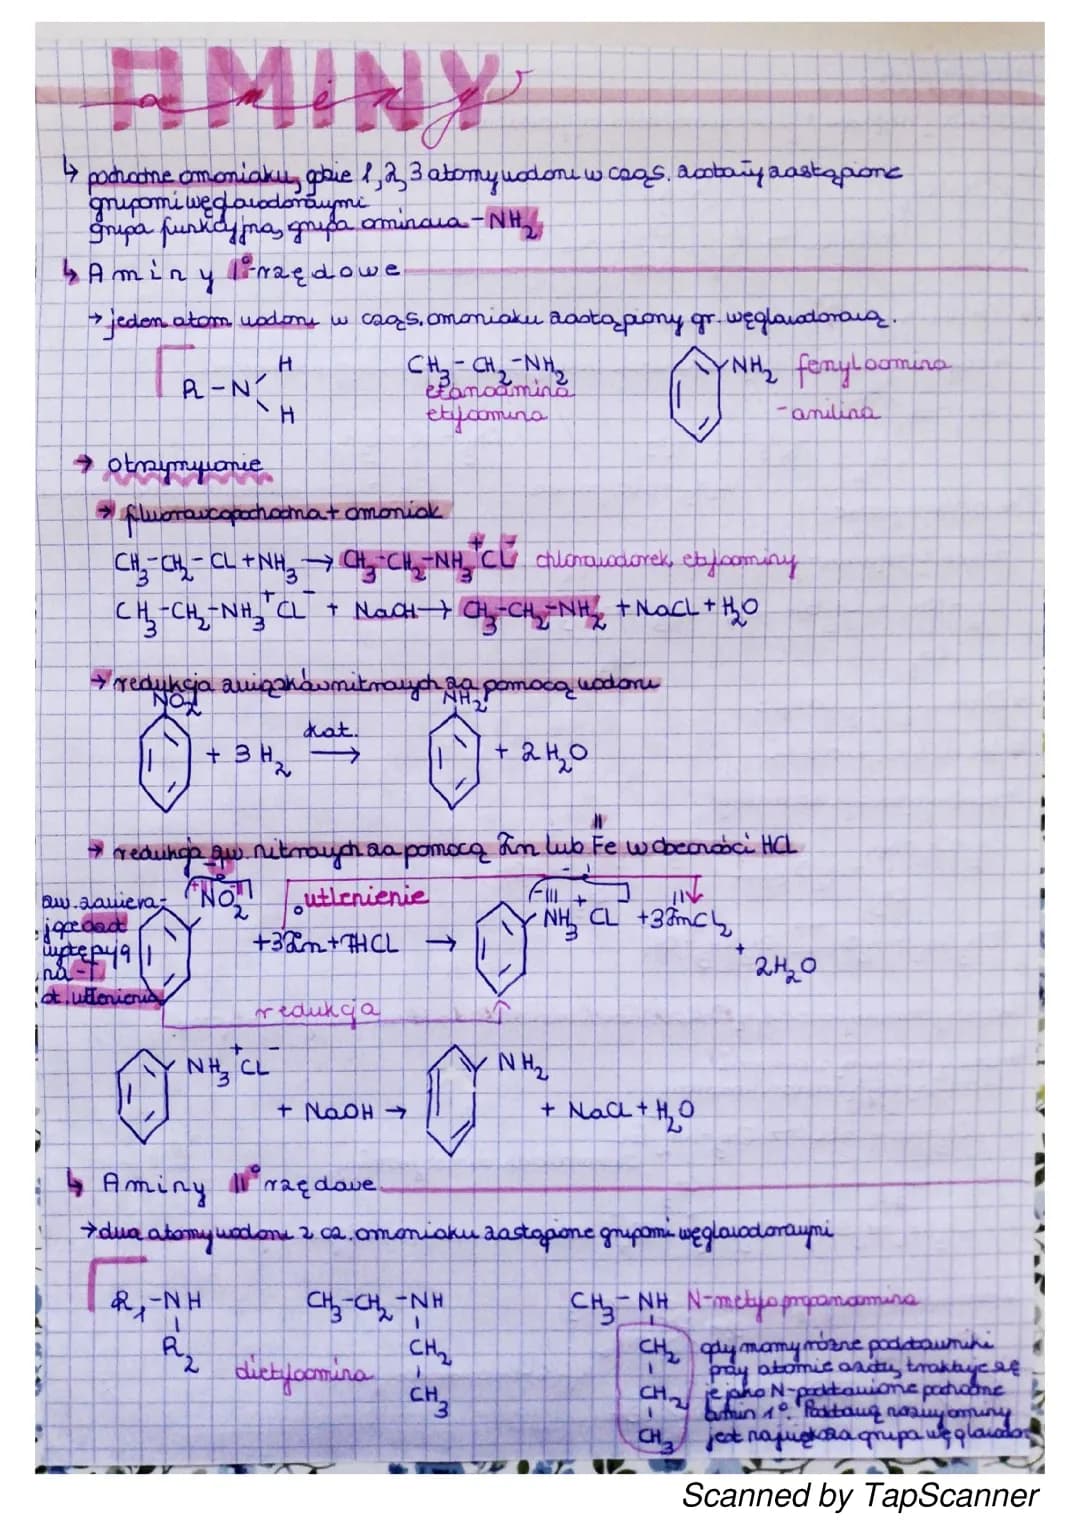 AMINY
aminy
↳ pochodne amoniaku, gdzie 1, 2, 3 atomy wodoru w cząs. zostały zastąpione
grupami węglowodorowymi
grupa funkcyjna, grupa aminowa -NH₂
↳ Aminy I°-rzędowe
→ jeden atom wodoru w cząs. amoniaku zastąpiony gr. węglowodorową.
R - N H H
CH₃-CH₂-NH₂
etanoamina
etyloamina
NH₂ fenyloamina
-anilina
→ otrzymywanie
→ fluorowcopochodna + amoniak
CH₃-CH₂-CL + NH₃ → CH₃-CH₂-NH₃⁺CL⁻ chlorowodorek etyloaminy
CH₃-CH₂-NH₃⁺CL⁻ + NaOH → CH₃-CH₂-NH₂ + NaCL + H₂O
→ redukcja związków nitrowych za pomocą wodoru
NO₂ + 3 H₂ kat. → NH₂ + 2 H₂O
II
→ redukcja zw. nitrowych za pomocą Zn lub Fe w obecności HCL
zw. zawiera-
jące azot
występują
na -I
st. utlenienia
utlenienie
NO₂ + 3Zn + 7HCL → NH₃⁺CL⁻ + 3ZnCL₂
+ 2H₂O
redukcja
NH₃⁺CL⁻ + NaOH → NH₂ + NaCL + H₂O
↳ Aminy II°rzędowe
→ dwa atomy wodoru z cz. amoniaku zastąpione grupami węglowodorowymi
R₁-NH
R₂
CH₃-CH₂-NH
CH₂
CH₃
dietyloamina
CH₃-NH N-metylopropanoamina
CH₂
CH₂
CH₃
gdy mamy różne podstawniki
przy atomie azotu, traktuje się
je jako N-podstawione pochodne
amin 1°. Podstawą nazwy aminy
jest największa grupa węglowodor
Scanned by TapScanner